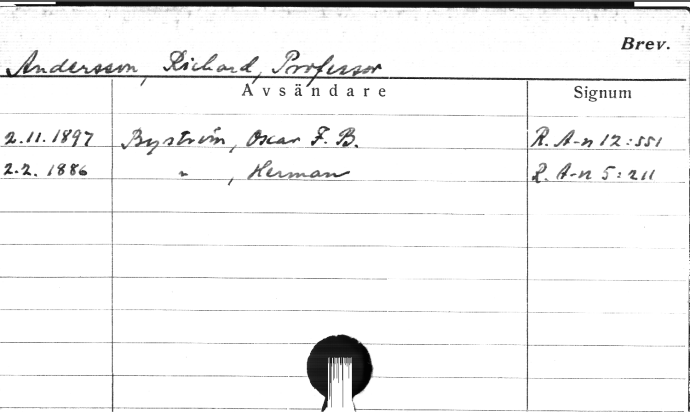 Brev.
Andersson, Richard, Professor
Avsändare Signum
2.11.1897 Byström, Oscar F. B. R. A-n 12:551
2.2. 1886 " , Herman R. A-n 5:211